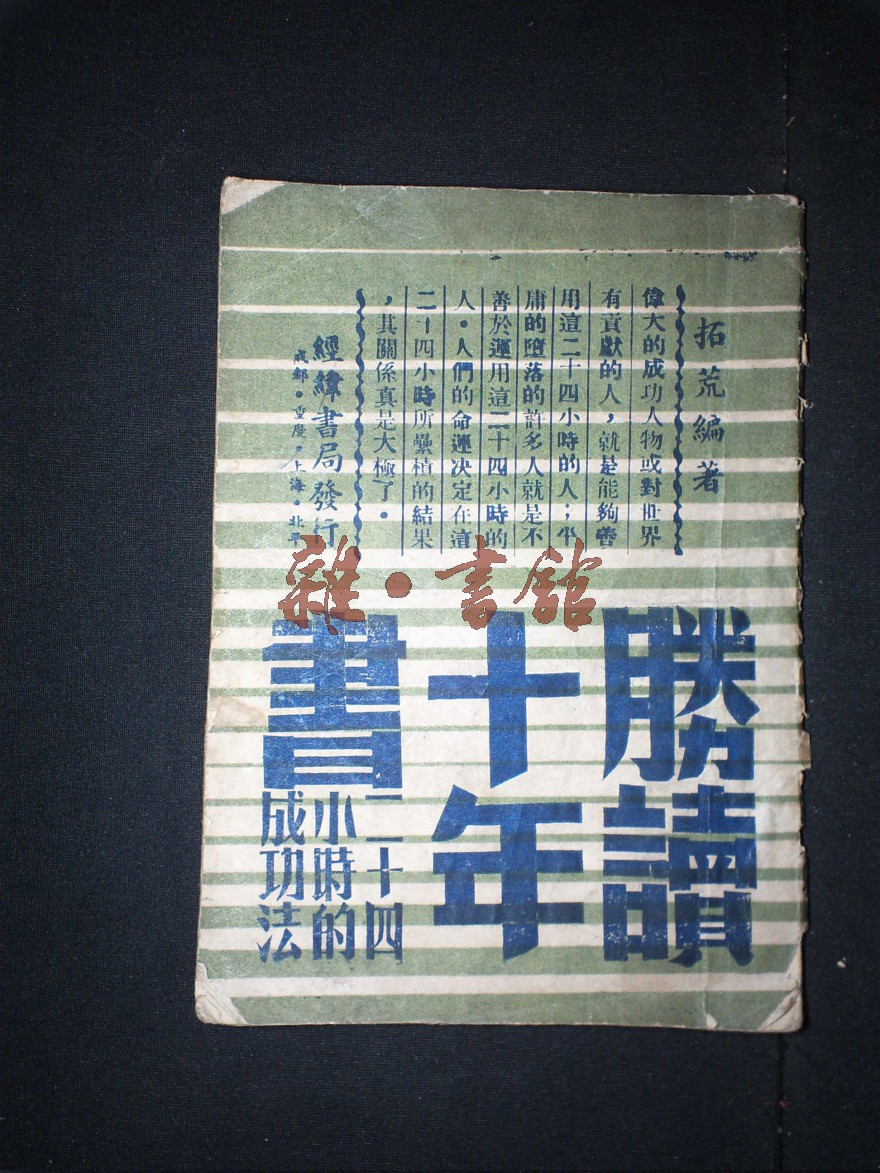 拓荒編著
偉大的成功人物或對世界
有貢獻的人，就是能夠善
用這二十四小時的人；平
庸的墮落的許多人就是不
善於運用這二十四小時的
人．人們的命運決定在這
二十四小時所壘積的結果
，其關係真是大極了．
經緯書局發行
成都．重慶．上海．北平
勝讀
十年
書
二十四
小時的
成功法
雜·書館